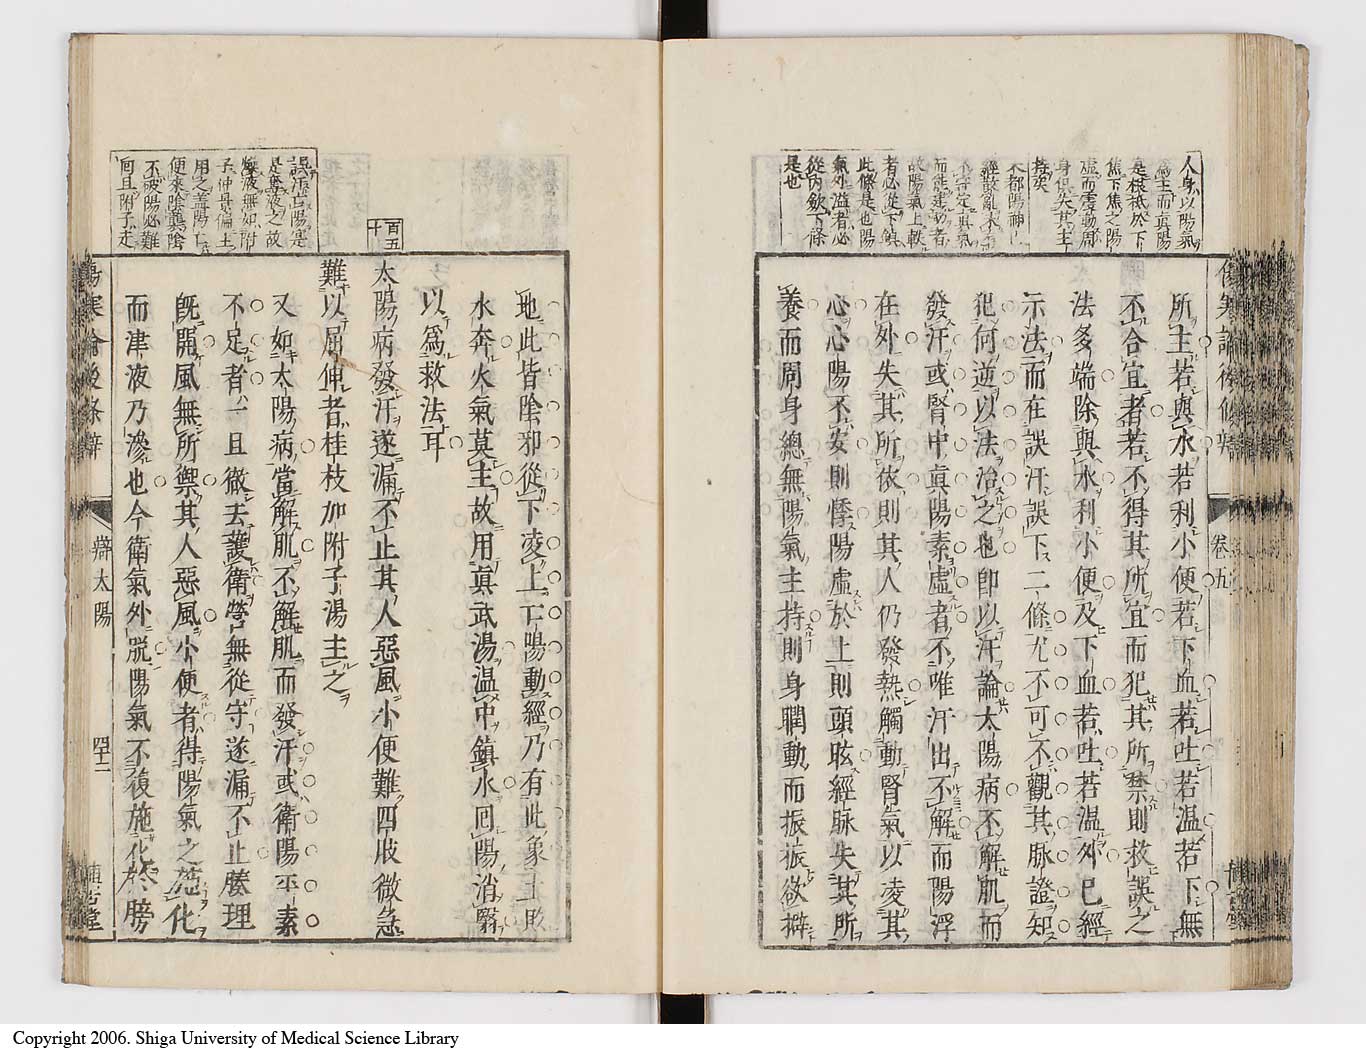 人身以陽氣
爲主而真陽
是根柢於下
焦下焦之陽
虛而震動周
身俱失其主
持矣
經散亂不
不守定真氣
而能運動者
故陽氣上軼
者必從下鎮
此條是也陽
氣外溢者必
從內斂下條
是也
傷寒論後條辨
卷五
所主若與水若利小便若下血若吐若溫若下無
不合宜者若不得其所宜而犯其所禁則救誤之
法多端除與水利小便及下血若吐若溫外已經
示法而在誤汗誤下二條尤不可不觀其脉證知
犯何逆以法治之也即以汗論太陽病不解肌而
發汗或腎中真陽素虛者不唯汗出不解而陽浮
在外失其所依則其人仍發熱觸動腎氣以凌其
心心陽不安則悸陽虛於上則頭眩經脉失其所
養而周身總無陽氣主持則身瞤動而振振欲擗
地此皆陰邪從下凌上亡陽動經乃有此象土敗
水奔火氣莫主故用真武湯温中鎮水回陽消翳
以爲救法耳
百五十
太陽病發汗遂漏不止其人惡風小便難四肢微急
難以屈伸者桂枝加附子湯主之
又如太陽病當解肌不解肌而發汗或衛陽平素
不足者一旦徹去護衛營無從守遂漏不止腠理
旣開風無所禦其人惡風小便者得陽氣之施化
而津液乃滲也今衛氣外脫陽氣不復施化於膀
誤汗亡陽寔
是奪液之故
斂液無如附
子仲景偏主
用之蓋陽亡
便來陰真陰
不破陽必難
回且附子走
傷寒論後條辨
辯太陽
四十二